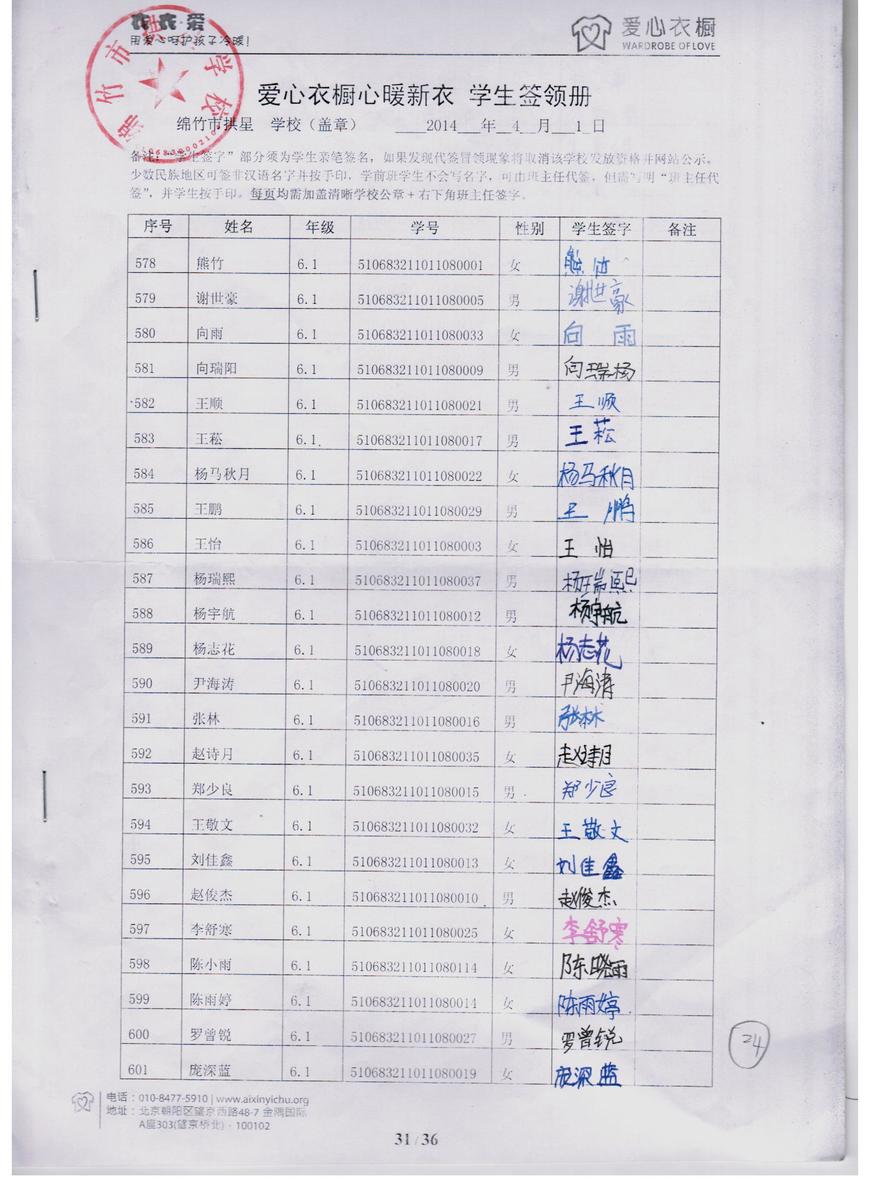 衣衣·爱
用爱心呵护孩子冷暖!
爱心衣橱
WARDROBE OF LOVE
爱心衣橱心暖新衣 学生签领册
绵竹市拱星 学校（盖章） 2014 年 4 月 1 日
备注："学生签字"部分须为学生亲笔签名，如果发现代签冒领现象将取消该学校发放资格并网站公示。
少数民族地区可签非汉语名字并按手印。学前班学生不会写名字，可由班主任代签，但需写明"班主任代
签"，并学生按手印。每页均需加盖清晰学校公章+右下角班主任签字。
序号 姓名 年级 学号 性别 学生签字 备注
578 熊竹 6.1 510683211011080001 女 熊竹
579 谢世豪 6.1 510683211011080005 男 谢世豪
580 向雨 6.1 510683211011080033 女 向雨
581 向瑞阳 6.1 510683211011080009 男 向瑞杨
582 王顺 6.1 510683211011080021 男 王顺
583 王菘 6.1 510683211011080017 男 王菘
584 杨马秋月 6.1 510683211011080022 女 杨马秋月
585 王鹏 6.1 510683211011080029 男 王鹏
586 王怡 6.1 510683211011080003 女 王怡
587 杨瑞熙 6.1 510683211011080037 男 杨瑞熙
588 杨宇航 6.1 510683211011080012 男 杨宇航
589 杨志花 6.1 510683211011080018 女 杨志花
590 尹海涛 6.1 510683211011080020 男 尹海涛
591 张林 6.1 510683211011080016 男 张林
592 赵诗月 6.1 510683211011080035 女 赵诗月
593 郑少良 6.1 510683211011080015 男 郑少良
594 王敬文 6.1 510683211011080032 女 王敬文
595 刘佳鑫 6.1 510683211011080013 女 刘佳鑫
596 赵俊杰 6.1 510683211011080010 男 赵俊杰
597 李舒寒 6.1 510683211011080025 女 李舒寒
598 陈小雨 6.1 510683211011080114 女 陈晓雨
599 陈雨婷 6.1 510683211011080014 女 陈雨婷
600 罗曾锐 6.1 510683211011080027 男 罗曾锐
601 庞深蓝 6.1 510683211011080019 女 庞深蓝
24
电话：010-8477-5910 | www.aixinyichu.org
地址：北京朝阳区望京西路48-7 金隅国际
A座303(望京桥北)·100102
31 / 36